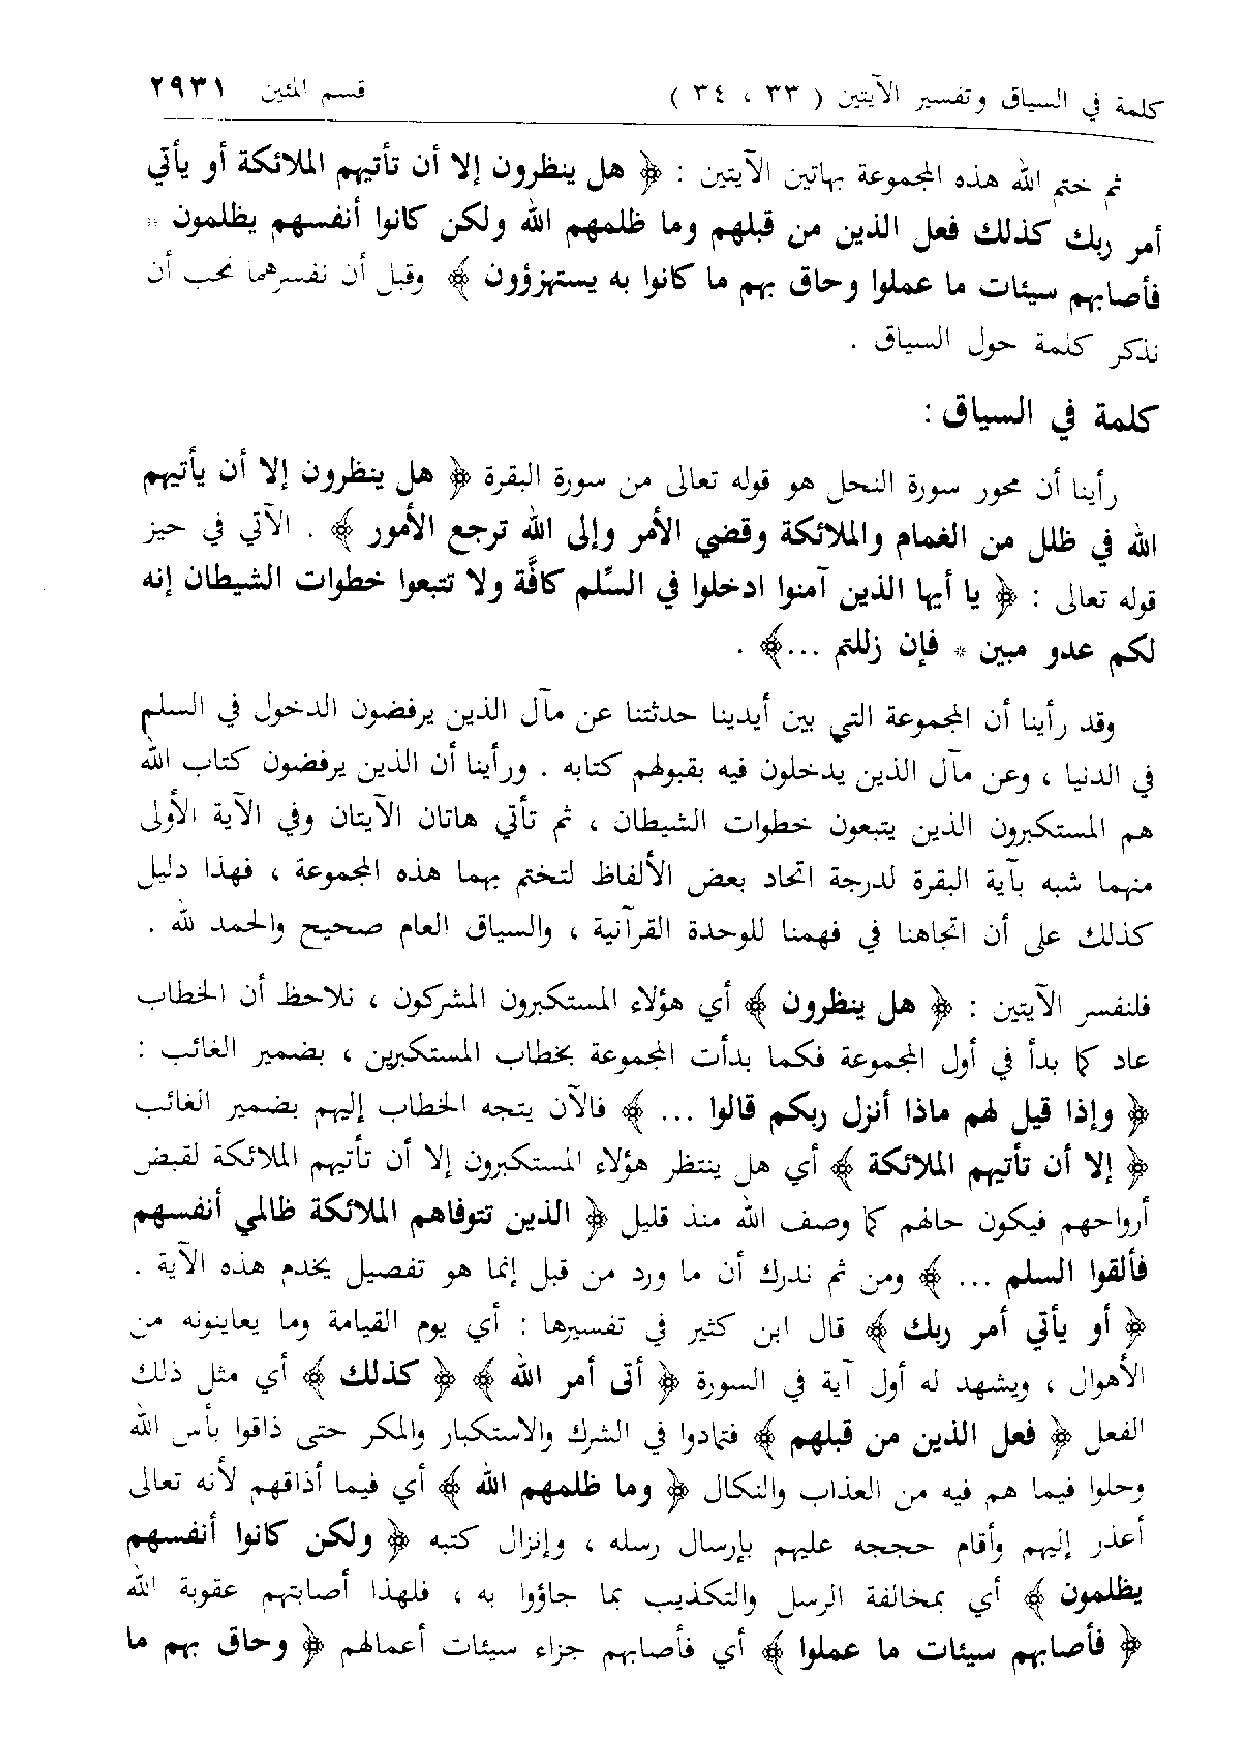 كلمة في السياق وتفسير الآيتين ( ٣٣ ، ٣٤ ) قسم المئين ٢٩٣١
ثم ختم الله هذه المجموعة بهاتين الآيتين : ﴿ هل ينظرون إلا أن تأتيهم الملائكة أو يأتي
أمر ربك كذلك فعل الذين من قبلهم وما ظلمهم الله ولكن كانوا أنفسهم يظلمون *
فأصابهم سيئات ما عملوا وحاق بهم ما كانوا به يستهزؤون ﴾ وقبل أن نفسرهما نحب أن
نذكر كلمة حول السياق .
كلمة في السياق :
رأينا أن محور سورة النحل هو قوله تعالى من سورة البقرة ﴿ هل ينظرون إلا أن يأتيهم
الله في ظلل من الغمام والملائكة وقضي الأمر وإلى الله ترجع الأمور ﴾ . الآتي في حيز
قوله تعالى : ﴿ يا أيها الذين آمنوا ادخلوا في السِّلم كافَّة ولا تتبعوا خطوات الشيطان إنه
لكم عدو مبين * فإن زللتم ...﴾ .
وقد رأينا أن المجموعة التي بين أيدينا حدثتنا عن مآل الذين يرفضون الدخول في السلم
في الدنيا ، وعن مآل الذين يدخلون فيه بقبولهم كتابه . ورأينا أن الذين يرفضون كتاب الله
هم المستكبرون الذين يتبعون خطوات الشيطان ، ثم تأتي هاتان الآيتان وفي الآية الأولى
منهما شبه بآية البقرة لدرجة اتحاد بعض الألفاظ لتختم بهما هذه المجموعة ، فهذا دليل
كذلك على أن اتجاهنا في فهمنا للوحدة القرآنية ، والسياق العام صحيح والحمد لله .
فلنفسر الآيتين : ﴿ هل ينظرون ﴾ أي هؤلاء المستكبرون المشركون ، نلاحظ أن الخطاب
عاد كما بدأ في أول المجموعة فكما بدأت المجموعة بخطاب المستكبرين ، بضمير الغائب :
﴿ وإذا قيل لهم ماذا أنزل ربكم قالوا ... ﴾ فالآن يتجه الخطاب إليهم بضمير الغائب
﴿ إلا أن تأتيهم الملائكة ﴾ أي هل ينتظر هؤلاء المستكبرون إلا أن تأتيهم الملائكة لقبض
أرواحهم فيكون حالهم كما وصف الله منذ قليل ﴿ الذين تتوفاهم الملائكة ظالمي أنفسهم
فألقوا السلم ... ﴾ ومن ثم ندرك أن ما ورد من قبل إنما هو تفصيل يخدم هذه الآية .
﴿ أو يأتي أمر ربك ﴾ قال ابن كثير في تفسيرها : أي يوم القيامة وما يعاينونه من
الأهوال ، ويشهد له أول آية في السورة ﴿ أتى أمر الله ﴾ ﴿ كذلك ﴾ أي مثل ذلك
الفعل ﴿ فعل الذين من قبلهم ﴾ فتمادوا في الشرك والاستكبار والمكر حتى ذاقوا بأس الله
وحلوا فيما هم فيه من العذاب والنكال ﴿ وما ظلمهم الله ﴾ أي فيما أذاقهم لأنه تعالى
أعذر إليهم وأقام حججه عليهم بإرسال رسله ، وإنزال كتبه ﴿ ولكن كانوا أنفسهم
يظلمون ﴾ أي بمخالفة الرسل والتكذيب بما جاؤوا به ، فلهذا أصابتهم عقوبة الله
﴿ فأصابهم سيئات ما عملوا ﴾ أي فأصابهم جزاء سيئات أعمالهم ﴿ وحاق بهم ما